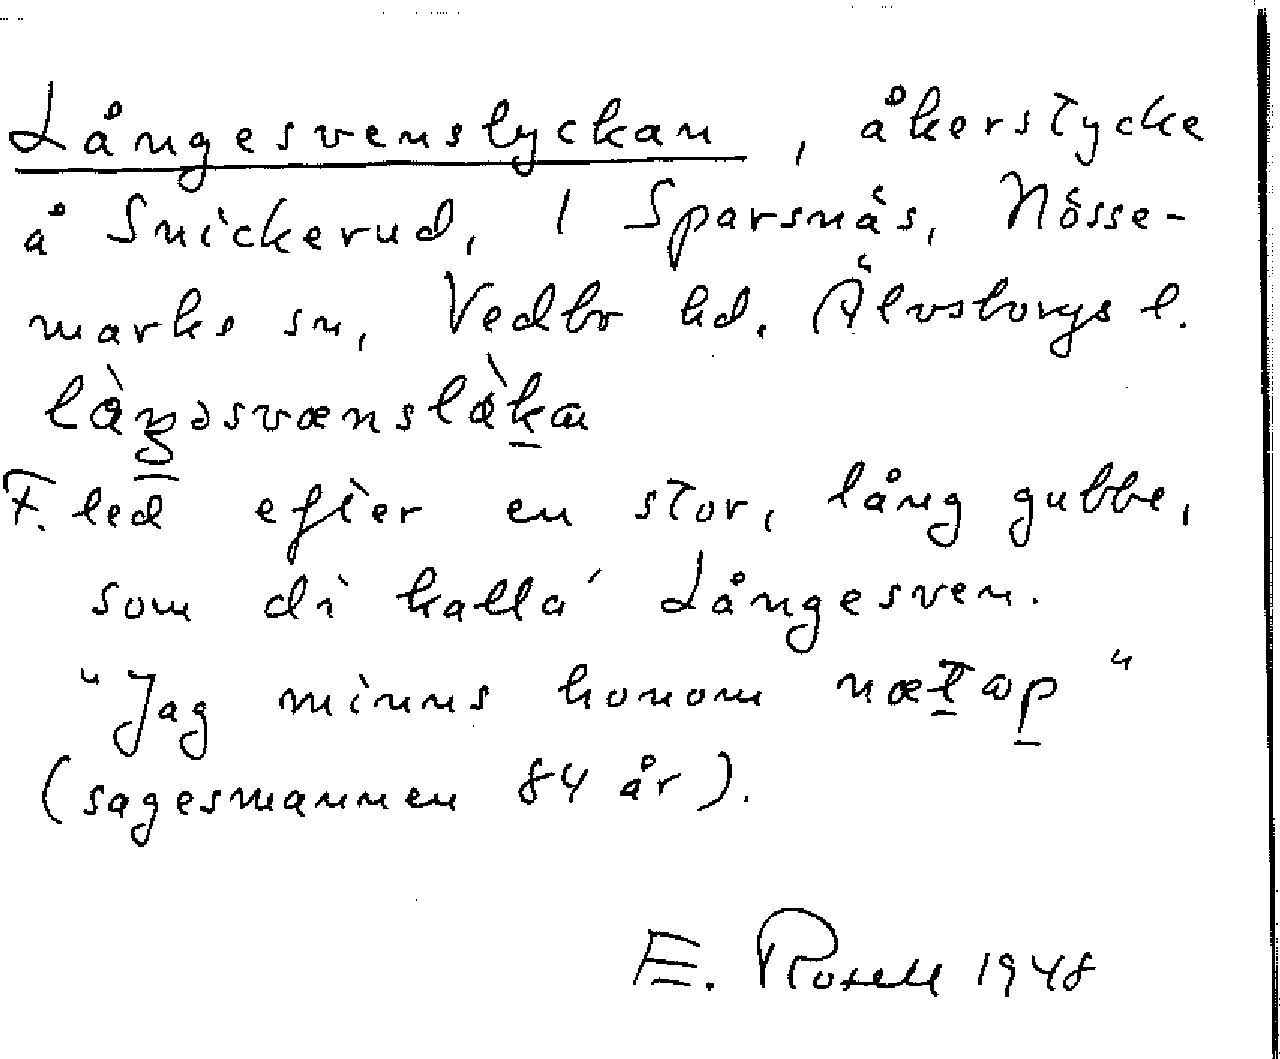 Långesvenslyckan, åkerstycke
å Snickerud, 1 Sparsnäs, Nösse-
marks sn, Vedbo hd. Älvsborgs l.
F. led efter en stor, lång gubbe,
som di kalla' Långesven.
"Jag minns honom
(sagesmannen 84 år).
E. Rosell 1948